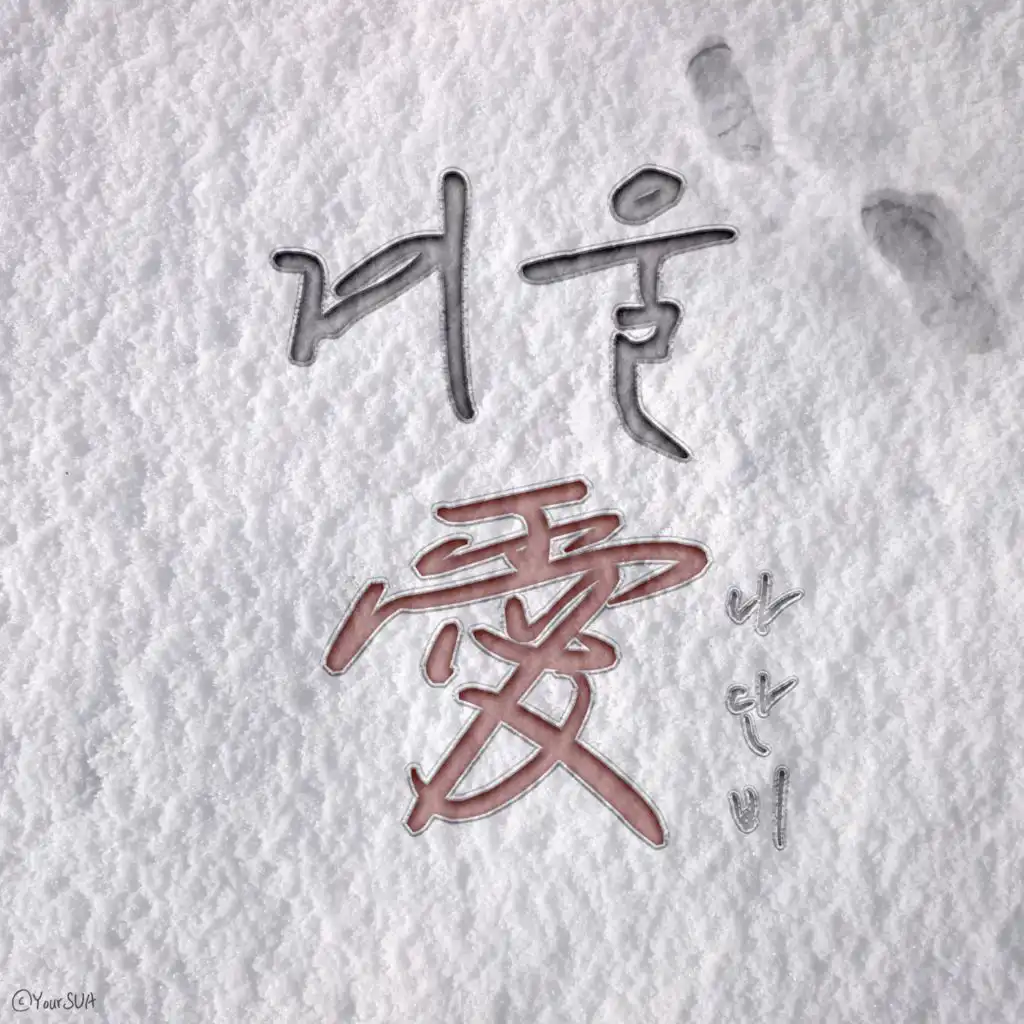 겨울
愛
나단비
©YourSUA